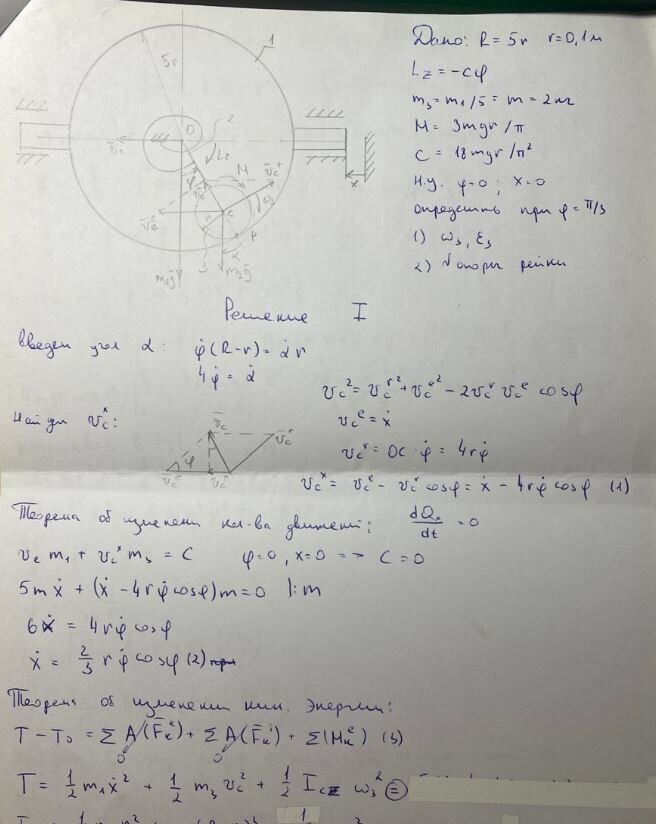 Дано: R = 5r r = 0,1 м
L_z = -cφ
m₃ = m₁/5 = m = 2 кг
M = 3mgr/π
c = 18mgr/π²
н.у. φ=0; x=0
определить при φ = π/3
1) ω₃, ε₃
2) N опоры рейки
1
5r
O
2
L_z
M
φ
C
3
α
x
m₁g
m₃g
Решение I
Введем угол α: φ̇(R-r) = α̇ r
4φ̇ = α̇
v_c² = v_c^r² + v_c^e² - 2v_c^r v_c^e cosφ
v_c^e = ẋ
v_c^r = OC · φ̇ = 4rφ̇
Найдем v_c^x:
v_c^x = v_c^e - v_c^r cosφ = ẋ - 4rφ̇ cosφ (1)
Теорема об изменении кол-ва движений: dQ_x/dt = 0
v_e m₁ + v_c^x m₃ = C φ=0, x=0 => C=0
5mẋ + (ẋ - 4rφ̇cosφ)m = 0 |:m
6ẋ = 4rφ̇ cosφ
ẋ = 2/3 rφ̇ cosφ (2)
Теорема об изменении кин. энергии:
T - T₀ = ΣA(F̄_k^e) + ΣA(F̄_k^i) + Σ(M_k^e) (3)
0 0
T = 1/2 m₁ẋ² + 1/2 m₃v_c² + 1/2 I_cz ω₃² =